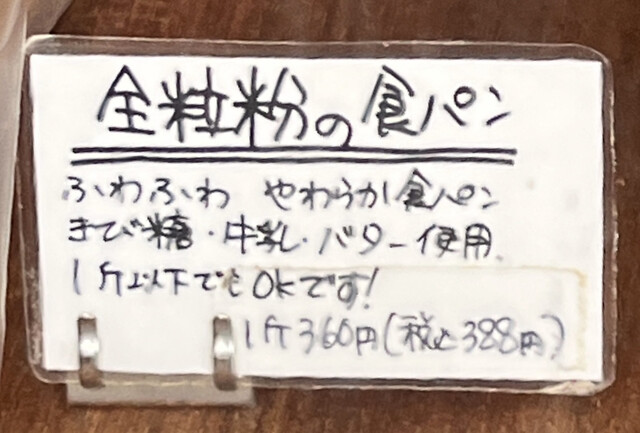 全粒粉の食パン
ふわふわ やわらか食パン
きび糖・牛乳・バター使用
1斤以下でもOKです!
1斤360円(税込388円)